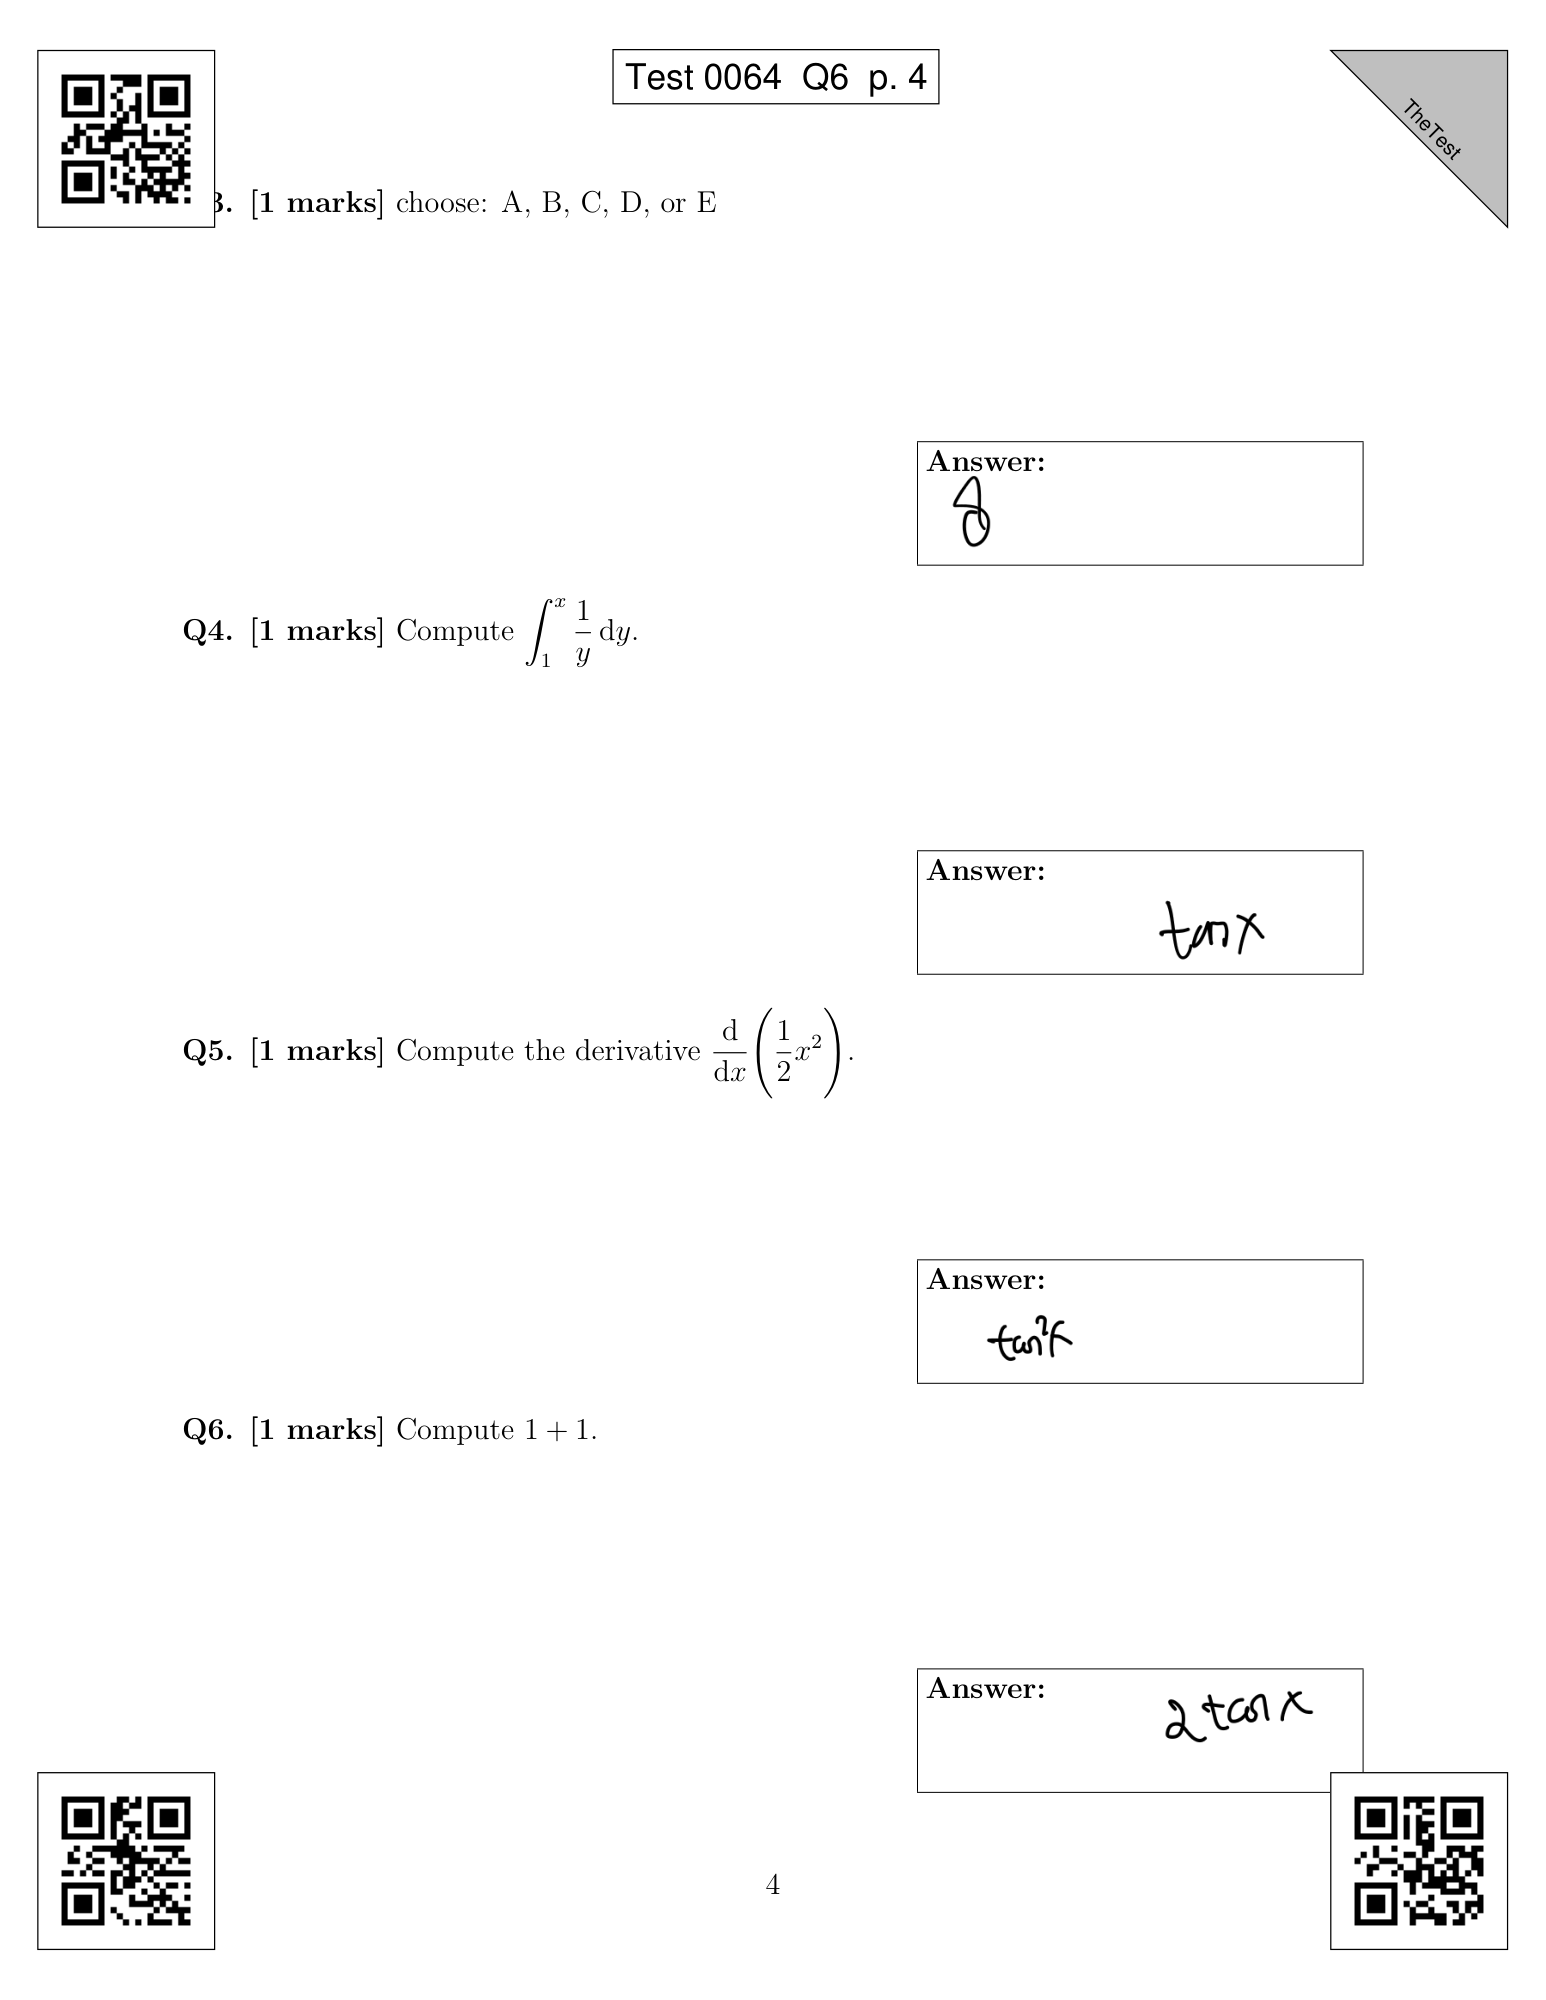 Test 0064 Q6 p. 4
TheTest
3. [1 marks] choose: A, B, C, D, or E
Answer:
8
Q4. [1 marks] Compute ∫₁ˣ 1/y dy.
Answer:
tan x
Q5. [1 marks] Compute the derivative d/dx (1/2 x²).
Answer:
tan²x
Q6. [1 marks] Compute 1 + 1.
Answer:
2 tan x
4